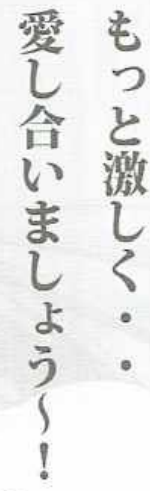 もっと激しく・・
愛し合いましょう～！